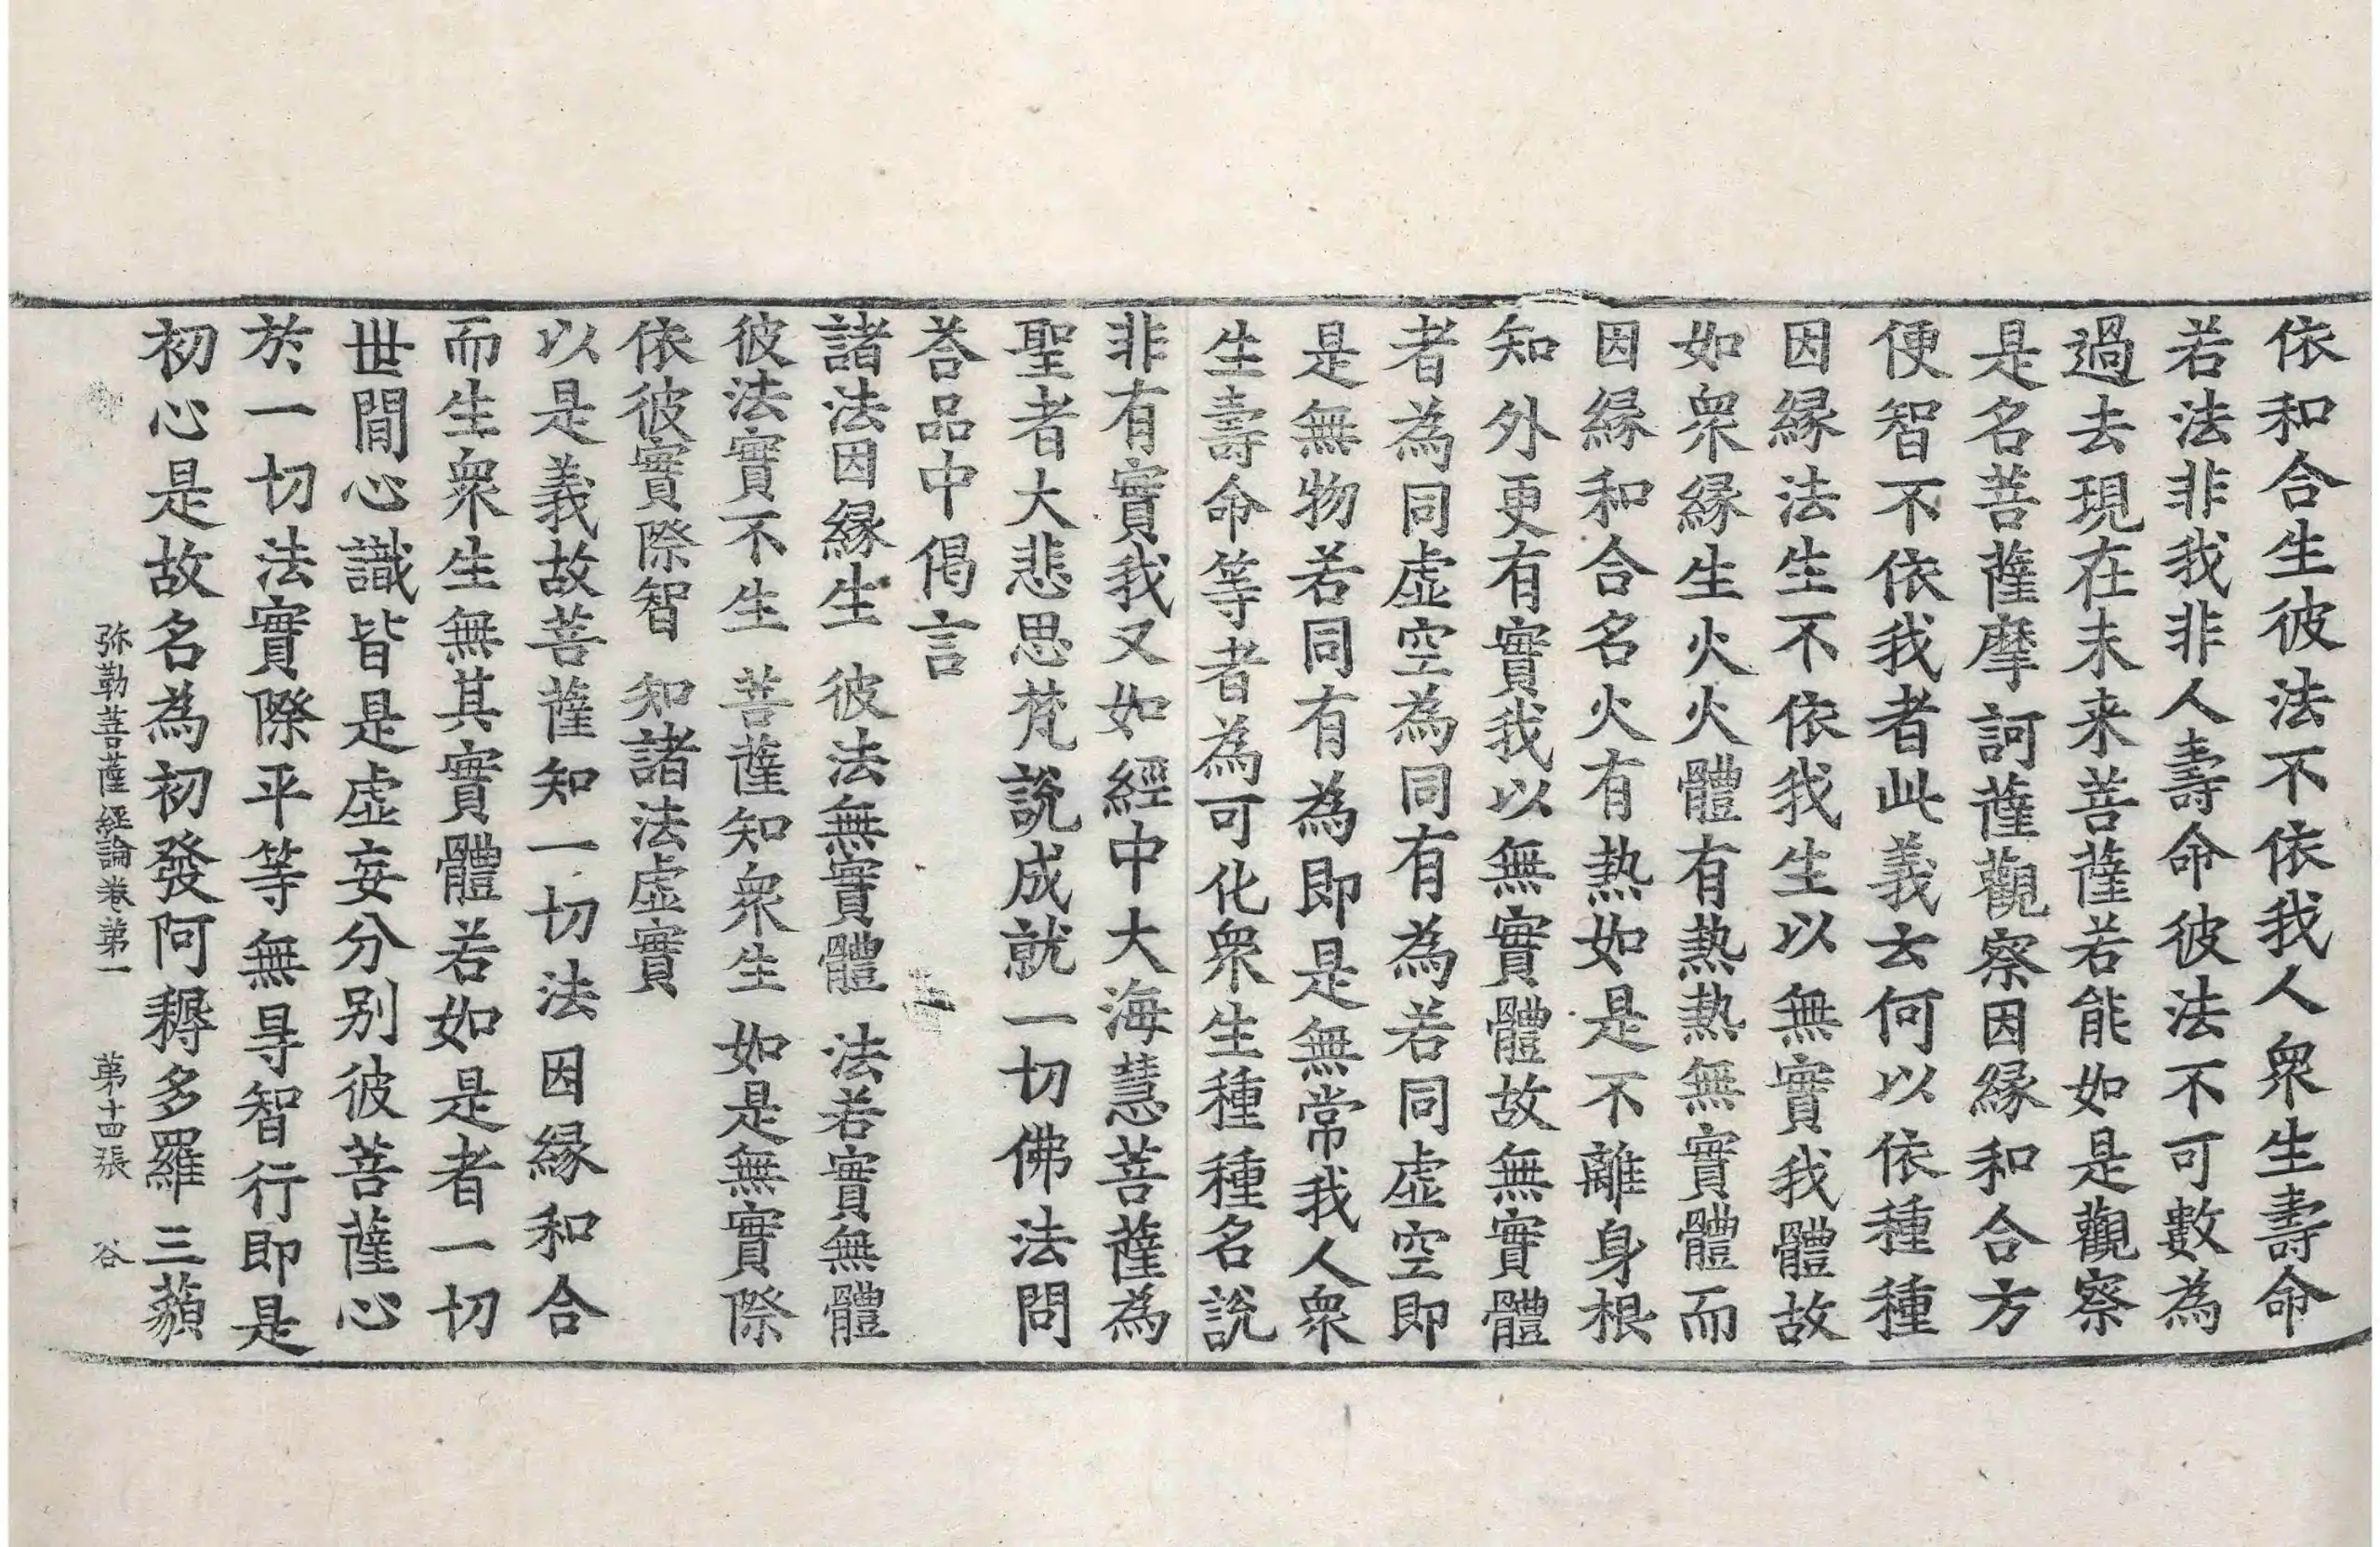 依和合生彼法不依我人衆生壽命
若法非我非人壽命彼法不可數為
過去現在未来菩薩若能如是觀察
是名菩薩摩訶薩觀察因縁和合方
便智不依我者此義云何以依種種
因縁法生不依我生以無實我體故
如衆縁生火火體有熱熱無實體而
因縁和合名火有熱如是不離身根
知外更有實我以無實體故無實體
者為同虛空為同有為若同虛空即
是無物若同有為即是無常我人衆
生壽命等者為可化衆生種種名說
非有實我又如經中大海慧菩薩為
聖者大悲思梵說成就一切佛法問
荅品中偈言
諸法因縁生　彼法無實體　法若實無體
彼法實不生　菩薩知衆生　如是無實際
依彼實際智　知諸法虛實
以是義故菩薩知一切法因縁和合
而生衆生無其實體若如是者一切
世間心識皆是虛妄分别彼菩薩心
於一切法實際平等無㝵智行即是
初心是故名為初發阿耨多羅三藐
弥勒菩薩經論卷第一　第十四張　谷